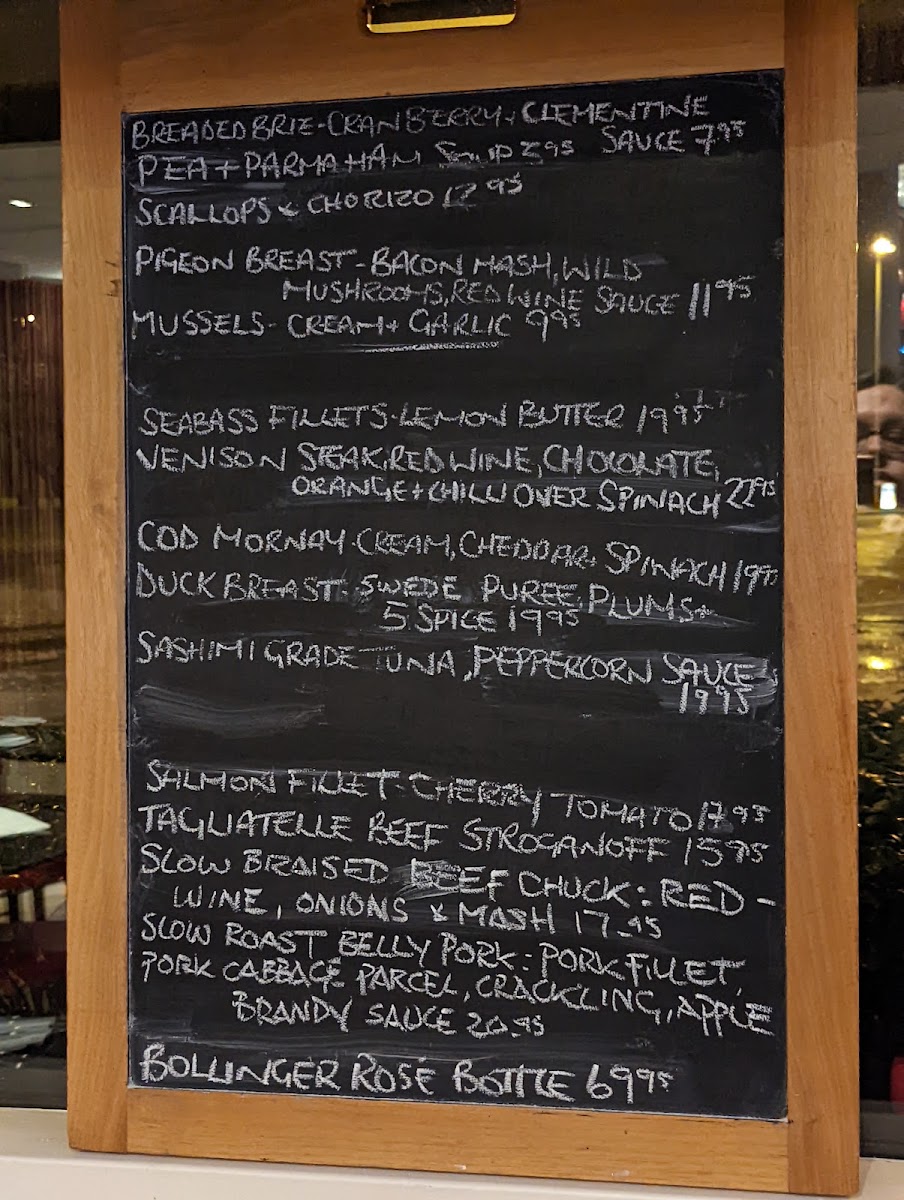 BREADED BRIE-CRANBERRY + CLEMENTINE
SAUCE 7.95
PEA + PARMA HAM SOUP 5.95
SCALLOPS & CHORIZO 12.95
PIGEON BREAST - BACON MASH, WILD
MUSHROOMS, RED WINE SAUCE 11 95
MUSSELS - CREAM + GARLIC 9 95
SEABASS FILLETS - LEMON BUTTER 19 95
VENISON STEAK, RED WINE, CHOCOLATE,
ORANGE + CHILLI OVER SPINACH 22 95
COD MORNAY - CREAM, CHEDDAR + SPINACH 19 95
DUCK BREAST - SWEDE PUREE, PLUMS +
5 SPICE 19 95
SASHIMI GRADE TUNA, PEPPERCORN SAUCE
19.95
SALMON FILLET - CHERRY TOMATO 17.95
TAGLIATELLE BEEF STROGANOFF 15 95
SLOW BRAISED BEEF CHUCK: RED -
WINE, ONIONS & MASH 17.95
SLOW ROAST BELLY PORK: PORK FILLET,
PORK CABBAGE PARCEL, CRACKLING, APPLE
BRANDY SAUCE 20.95
BOLLINGER ROSÉ BOTTLE 69 95